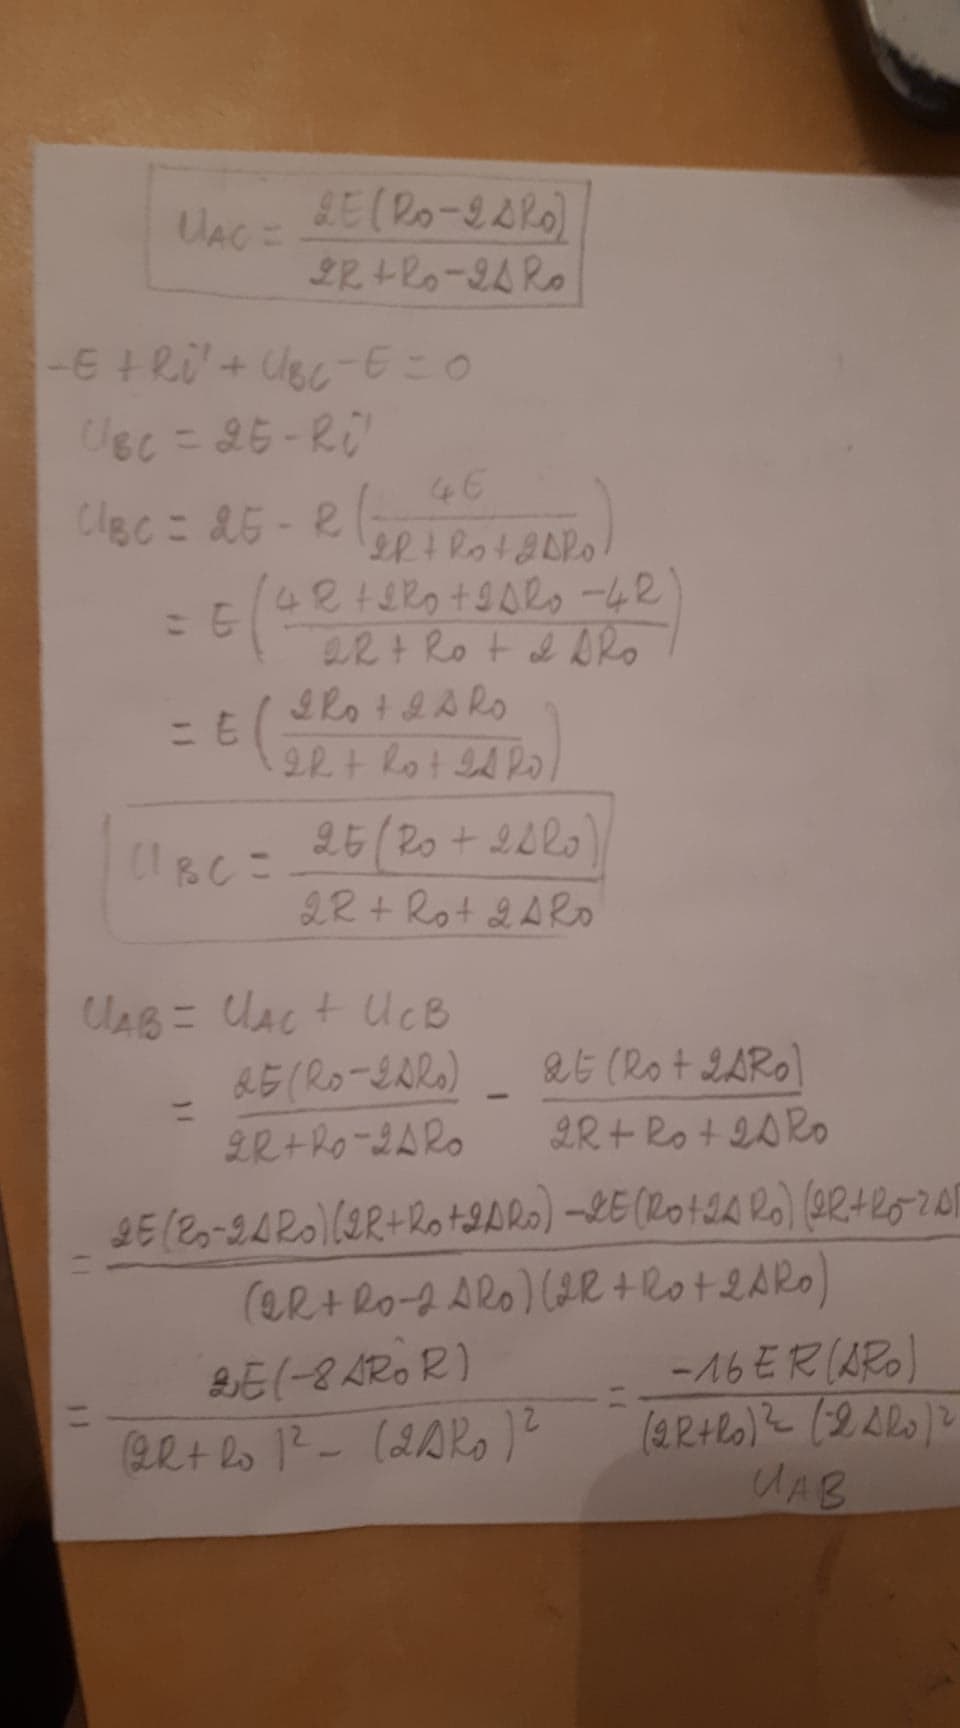 U_AC = 2E(R₀-2ΔR₀) / 2R+R₀-2ΔR₀
-E + Ri' + U_BC - E = 0
U_BC = 2E - Ri'
U_BC = 2E - R (4E / 2R+R₀+2ΔR₀)
= E (4R+2R₀+2ΔR₀-4R / 2R+R₀+2ΔR₀)
= E (2R₀+2ΔR₀ / 2R+R₀+2ΔR₀)
U_BC = 2E(R₀+2ΔR₀) / 2R+R₀+2ΔR₀
U_AB = U_AC + U_CB
= 2E(R₀-2ΔR₀) / 2R+R₀-2ΔR₀ - 2E(R₀+2ΔR₀) / 2R+R₀+2ΔR₀
= 2E(R₀-2ΔR₀)(2R+R₀+2ΔR₀)-2E(R₀+2ΔR₀)(2R+R₀-2Δ / (2R+R₀-2ΔR₀)(2R+R₀+2ΔR₀)
= 2E(-8ΔR₀R) / (2R+R₀)²-(2ΔR₀)² = -16ER(ΔR₀) / (2R+R₀)² (-2ΔR₀)²
U_AB